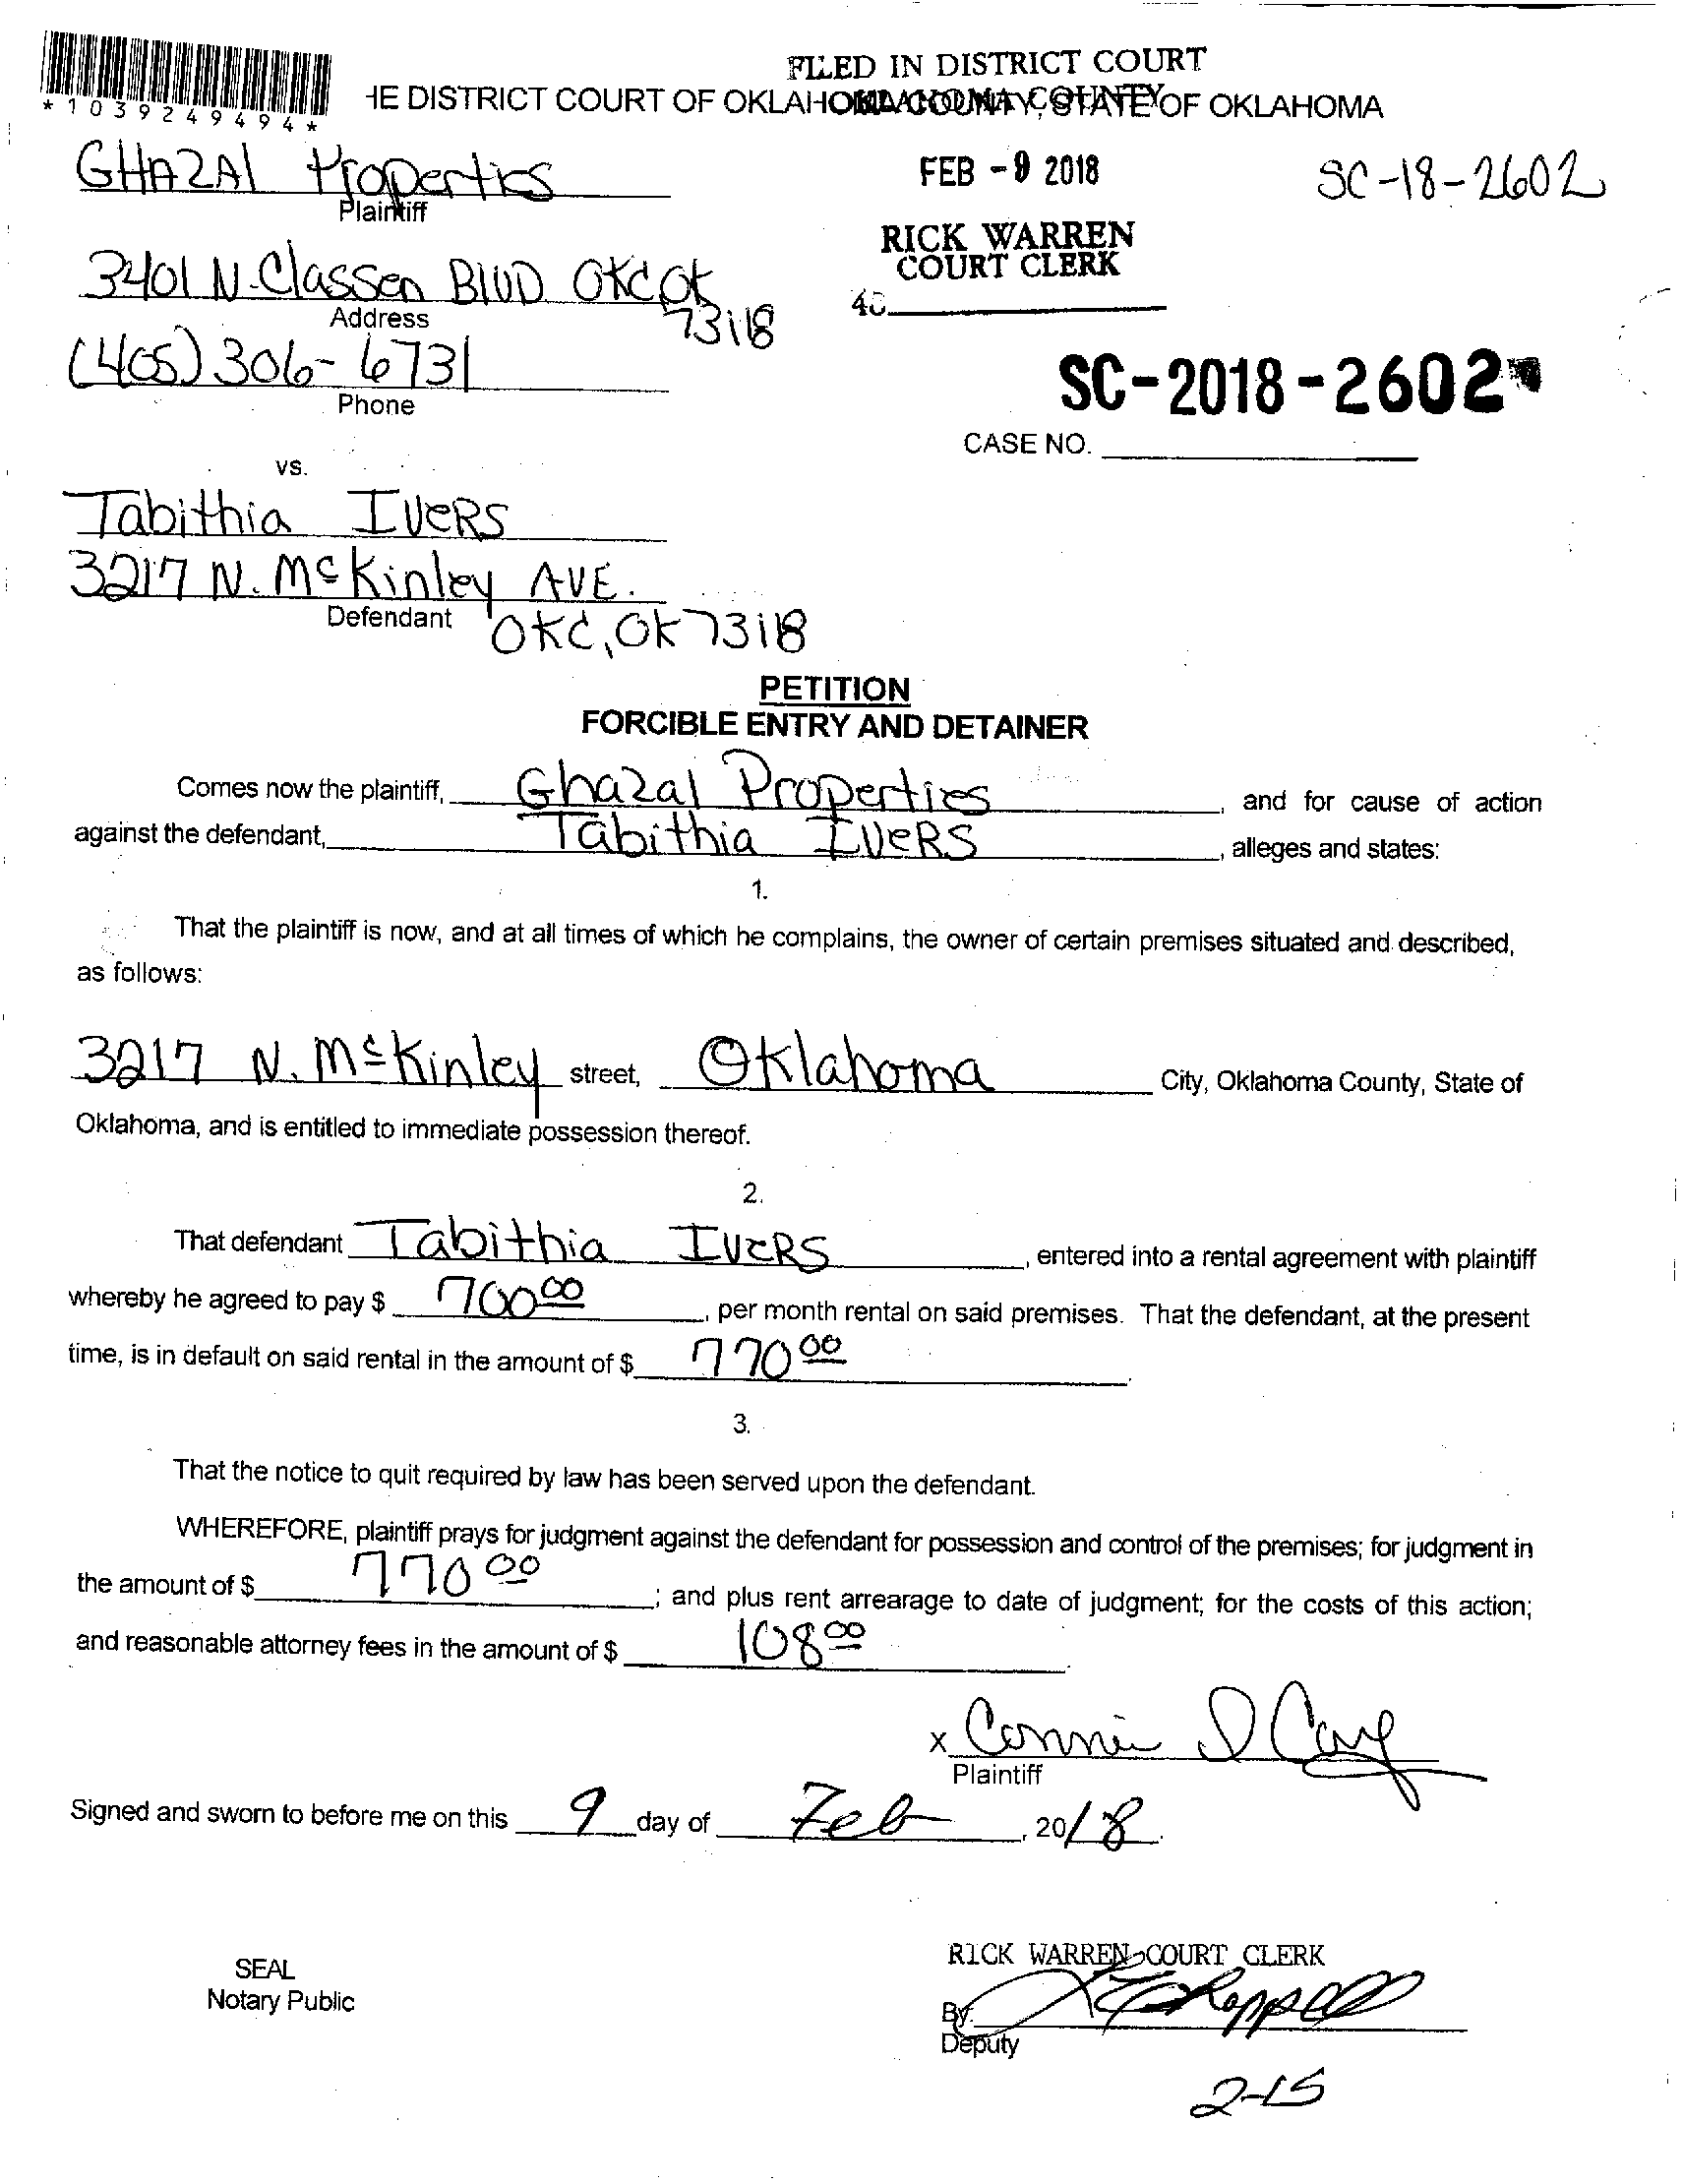 *1039249494*
FILED IN DISTRICT COURT
HE DISTRICT COURT OF OKLAHOMA COUNTY, STATE OF OKLAHOMA
GHAZAl Properties
Plaintiff
FEB -9 2018
SC-18-2602
RICK WARREN
COURT CLERK
3401 N. Classen BlVD OKC OK
73118
Address
(405) 306-6731
Phone
SC-2018-2602
CASE NO.
vs.
Tabithia IVERS
3217 N. McKinley AVE.
Defendant
OKC, OK 73118
PETITION
FORCIBLE ENTRY AND DETAINER
Comes now the plaintiff, Ghazal Properties, and for cause of action
against the defendant, Tabithia IVERS, alleges and states:
1.
That the plaintiff is now, and at all times of which he complains, the owner of certain premises situated and described,
as follows:
3217 N. McKinley street, Oklahoma City, Oklahoma County, State of
Oklahoma, and is entitled to immediate possession thereof.
2.
That defendant Tabithia IVERS, entered into a rental agreement with plaintiff
whereby he agreed to pay $ 700 00, per month rental on said premises. That the defendant, at the present
time, is in default on said rental in the amount of $ 770 00.
3.
That the notice to quit required by law has been served upon the defendant.
WHEREFORE, plaintiff prays for judgment against the defendant for possession and control of the premises; for judgment in
the amount of $ 770 00; and plus rent arrearage to date of judgment; for the costs of this action;
and reasonable attorney fees in the amount of $ 108 00.
x Connie
Plaintiff
Signed and sworn to before me on this 9 day of Feb, 2018.
SEAL
Notary Public
RICK WARREN COURT CLERK
By:
Deputy
2-15